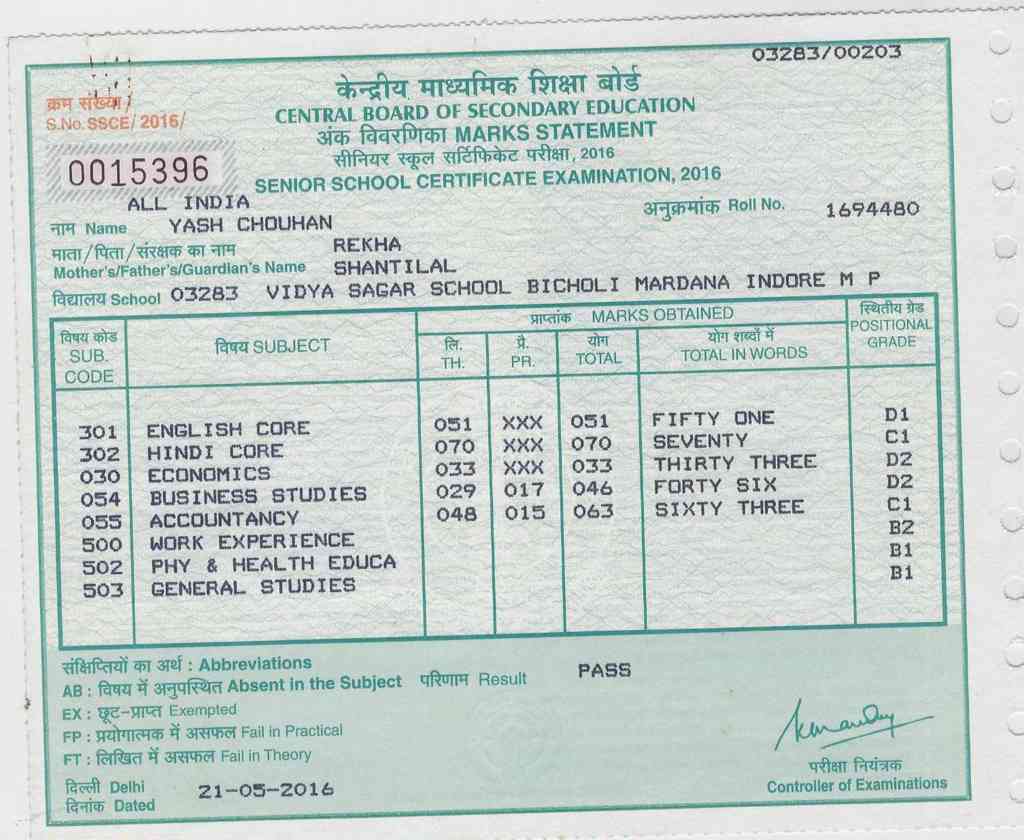 03283/00203
क्रम संख्या/
S.No. SSCE/ 2016/
0015396
केन्द्रीय माध्यमिक शिक्षा बोर्ड
CENTRAL BOARD OF SECONDARY EDUCATION
अंक विवरणिका MARKS STATEMENT
सीनियर स्कूल सर्टिफिकेट परीक्षा, 2016
SENIOR SCHOOL CERTIFICATE EXAMINATION, 2016
ALL INDIA
नाम Name YASH CHOUHAN अनुक्रमांक Roll No. 1694480
माता/पिता/संरक्षक का नाम REKHA
Mother's/Father's/Guardian's Name SHANTILAL
विद्यालय School 03283 VIDYA SAGAR SCHOOL BICHOLI MARDANA INDORE M P
विषय कोड SUB. CODE विषय SUBJECT प्राप्तांक MARKS OBTAINED स्थितीय ग्रेड POSITIONAL GRADE
लि. TH. प्रै. PR. योग TOTAL योग शब्दों में TOTAL IN WORDS
301 ENGLISH CORE 051 XXX 051 FIFTY ONE D1
302 HINDI CORE 070 XXX 070 SEVENTY C1
030 ECONOMICS 033 XXX 033 THIRTY THREE D2
054 BUSINESS STUDIES 029 017 046 FORTY SIX D2
055 ACCOUNTANCY 048 015 063 SIXTY THREE C1
500 WORK EXPERIENCE B2
502 PHY & HEALTH EDUCA B1
503 GENERAL STUDIES B1
संक्षिप्तियों का अर्थ : Abbreviations
AB : विषय में अनुपस्थित Absent in the Subject परिणाम Result PASS
EX : छूट-प्राप्त Exempted
FP : प्रयोगात्मक में असफल Fail in Practical
FT : लिखित में असफल Fail in Theory
दिल्ली Delhi
दिनांक Dated 21-05-2016
परीक्षा नियंत्रक
Controller of Examinations